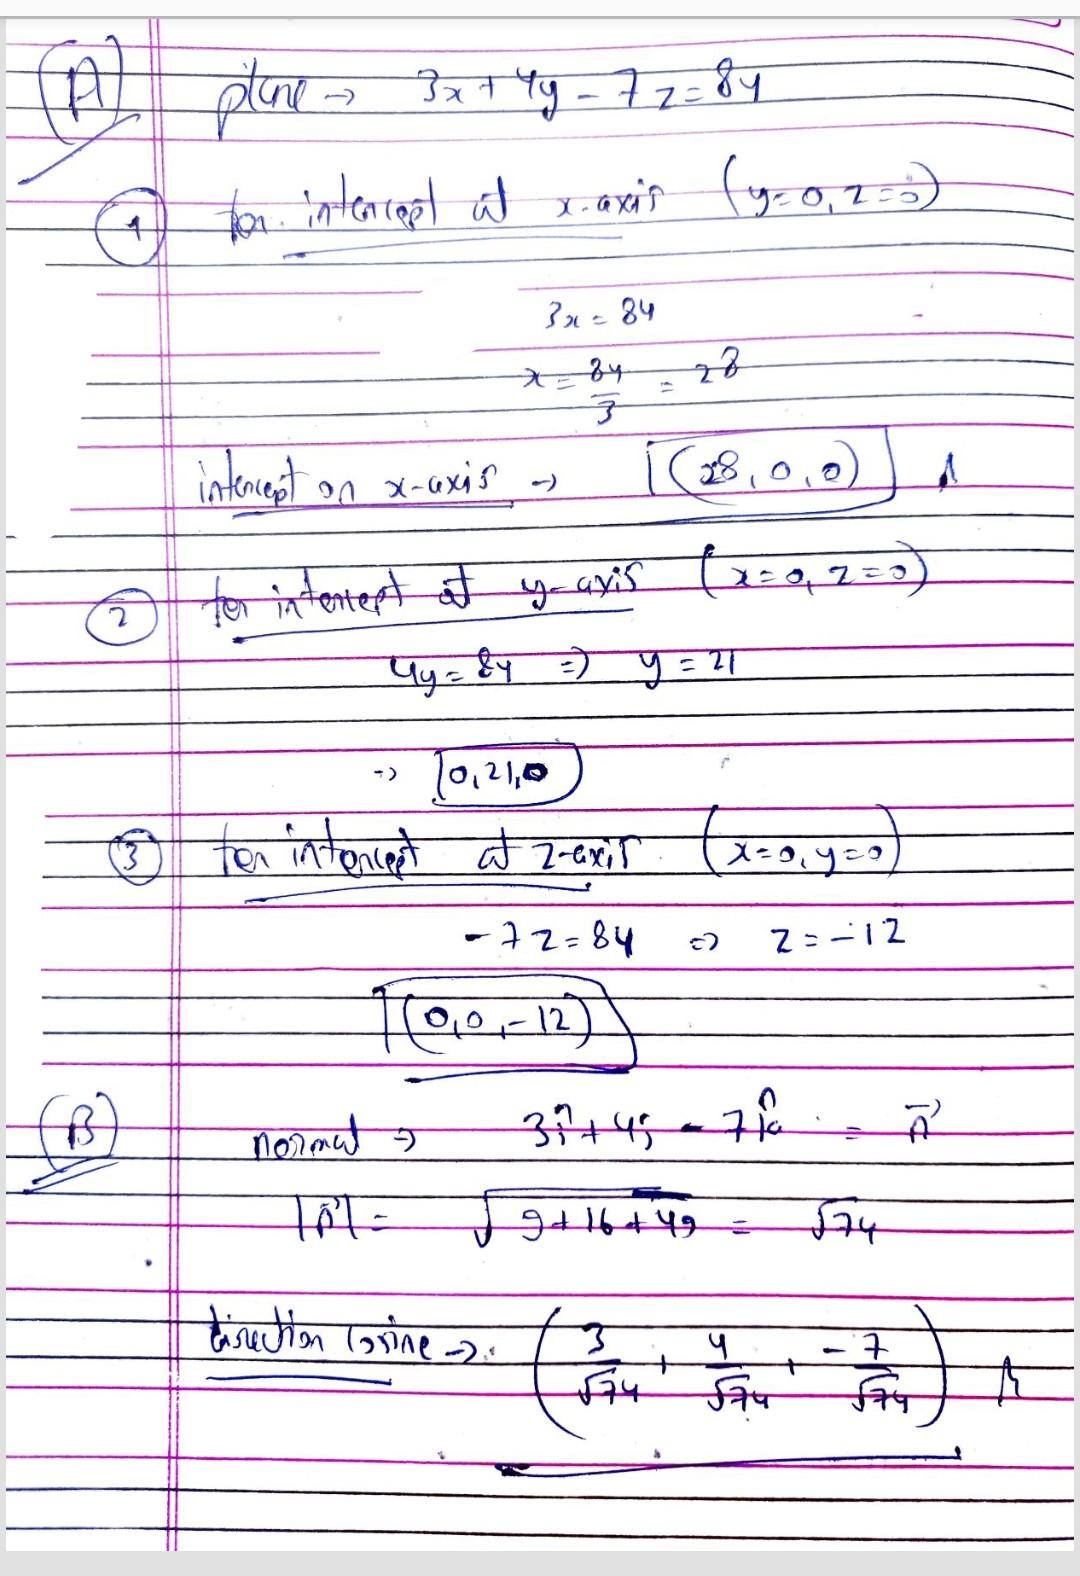 (A) plane → 3x + 4y - 7z = 84
(1) for intercept at x-axis (y=0, z=0)
3x = 84
x = 84/3 = 28
intercept on x-axis → (28, 0, 0)
(2) for intercept at y-axis (x=0, z=0)
4y = 84 => y = 21
→ (0, 21, 0)
(3) for intercept at z-axis (x=0, y=0)
-7z = 84 => z = -12
(0, 0, -12)
(B) normal → 3î + 4j - 7k̂ = n⃗
|n⃗| = √(9 + 16 + 49) = √74
direction cosine → (3/√74, 4/√74, -7/√74)